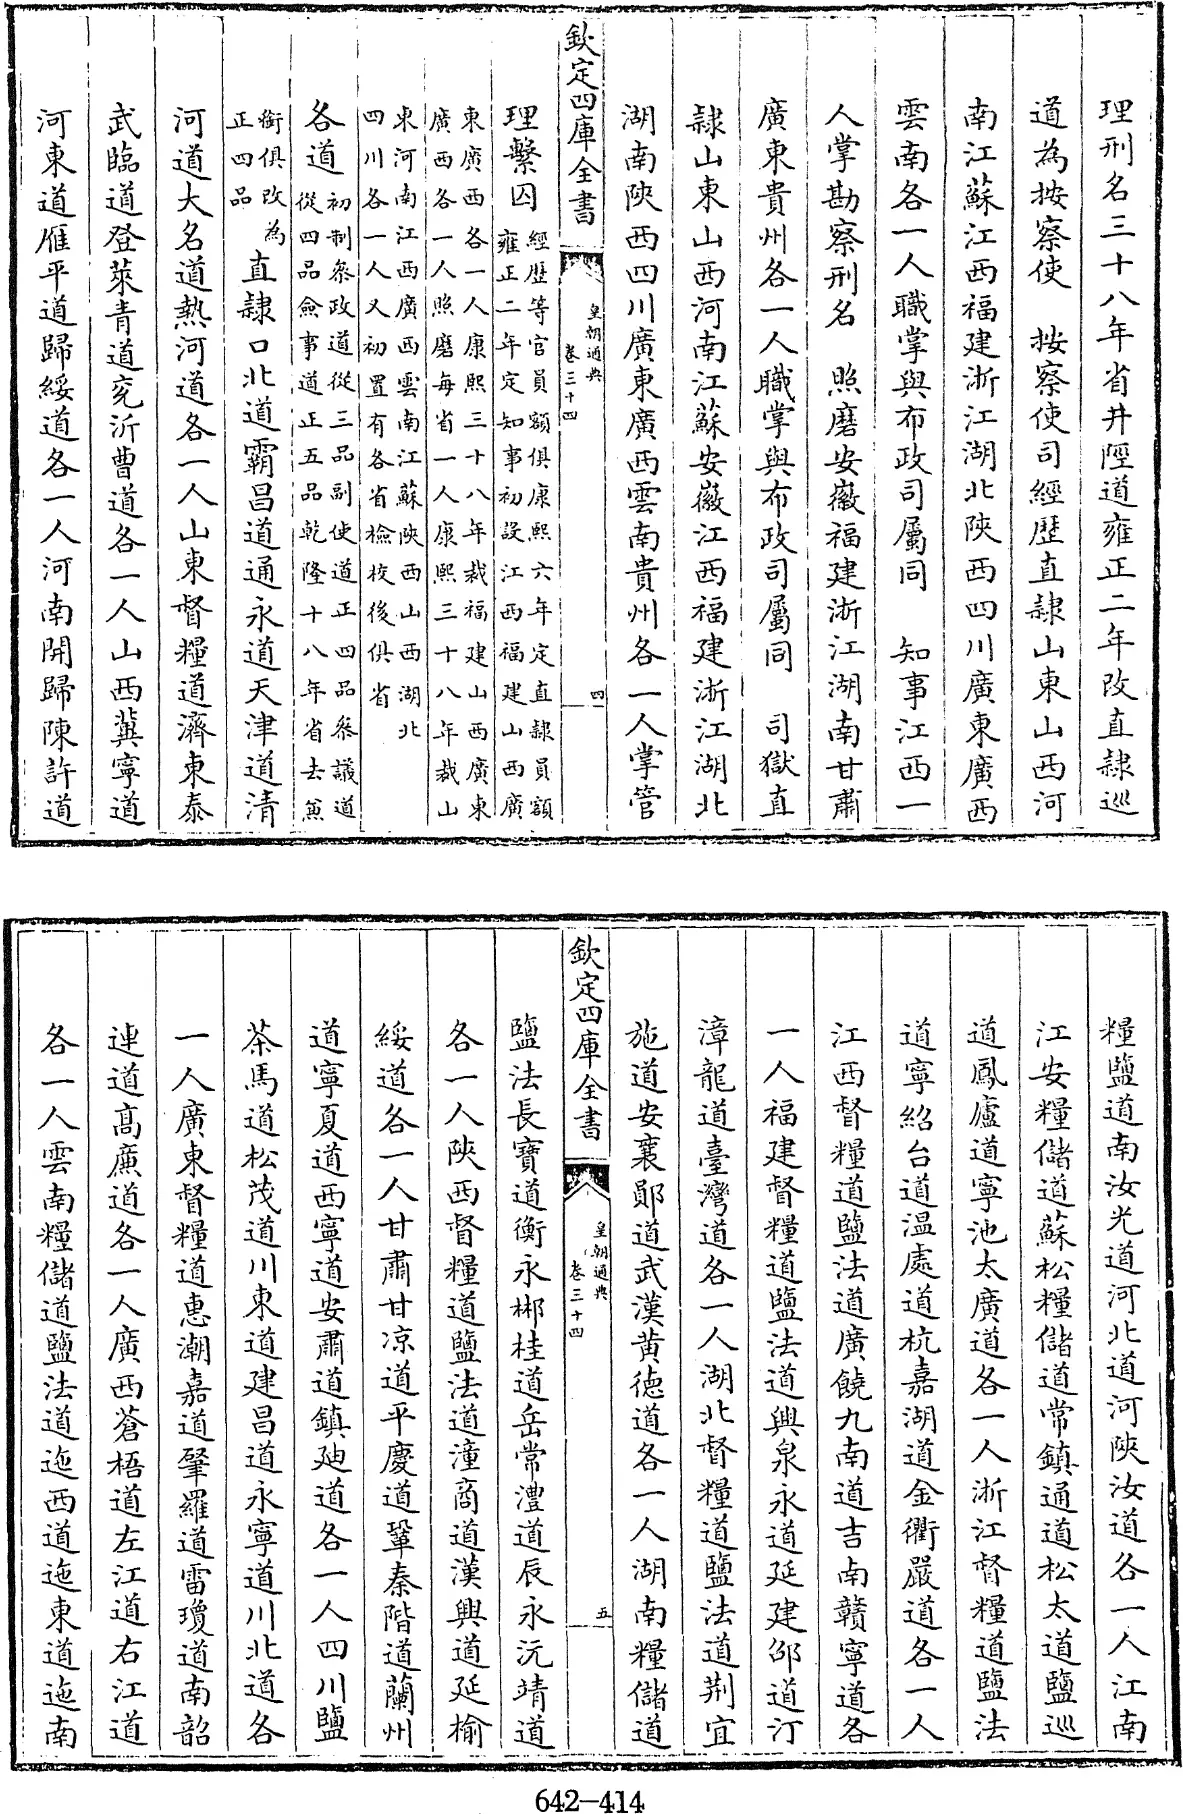 理刑名三十八年省井陘道雍正二年改直隸巡
道為按察使　按察使司經歷直隸山東山西河
南江蘇江西福建浙江湖北陝西四川廣東廣西
雲南各一人職掌與布政司屬同　知事江西一
人掌勘察刑名　照磨安徽福建浙江湖南甘肅
廣東貴州各一人職掌與布政司屬同　司獄直
隸山東山西河南江蘇安徽江西福建浙江湖北
湖南陝西四川廣東廣西雲南貴州各一人掌管
欽定四庫全書
皇朝通典
卷三十四
四
理繫囚
經歷等官員額俱康熙六年定直隸員額
雍正二年定知事初設江西福建山西廣
東廣西各一人康熙三十八年裁福建山西廣東
廣西各一人照磨每省一人康熙三十八年裁山
東河南江西廣西雲南江蘇陝西山西湖北
四川各一人又初置有各省檢校後俱省
各道
初制叅政道從三品副使道正四品叅議道
從四品僉事道正五品乾隆十八年省去兼
銜俱改為
正四品
直隸口北道霸昌道通永道天津道清
河道大名道熱河道各一人山東督糧道濟東泰
武臨道登萊青道兖沂曹道各一人山西冀寧道
河東道雁平道歸綏道各一人河南開歸陳許道
糧鹽道南汝光道河北道河陝汝道各一人江南
江安糧儲道蘇松糧儲道常鎮通道松太道鹽巡
道鳳廬道寧池太廣道各一人浙江督糧道鹽法
道寧紹台道温處道杭嘉湖道金衢嚴道各一人
江西督糧道鹽法道廣饒九南道吉南贛寧道各
一人福建督糧道鹽法道興泉永道延建邵道汀
漳龍道臺灣道各一人湖北督糧道鹽法道荆宜
施道安襄鄖道武漢黄徳道各一人湖南糧儲道
欽定四庫全書
皇朝通典
卷三十四
五
鹽法長寶道衡永郴桂道岳常澧道辰永沅靖道
各一人陝西督糧道鹽法道潼商道漢興道延榆
綏道各一人甘肅甘凉道平慶道鞏秦階道蘭州
道寧夏道西寧道安肅道鎮廸道各一人四川鹽
茶馬道松茂道川東道建昌道永寧道川北道各
一人廣東督糧道惠潮嘉道肇羅道雷瓊道南韶
連道髙廉道各一人廣西蒼梧道左江道右江道
各一人雲南糧儲道鹽法道迤西道迤東道迤南
642-414